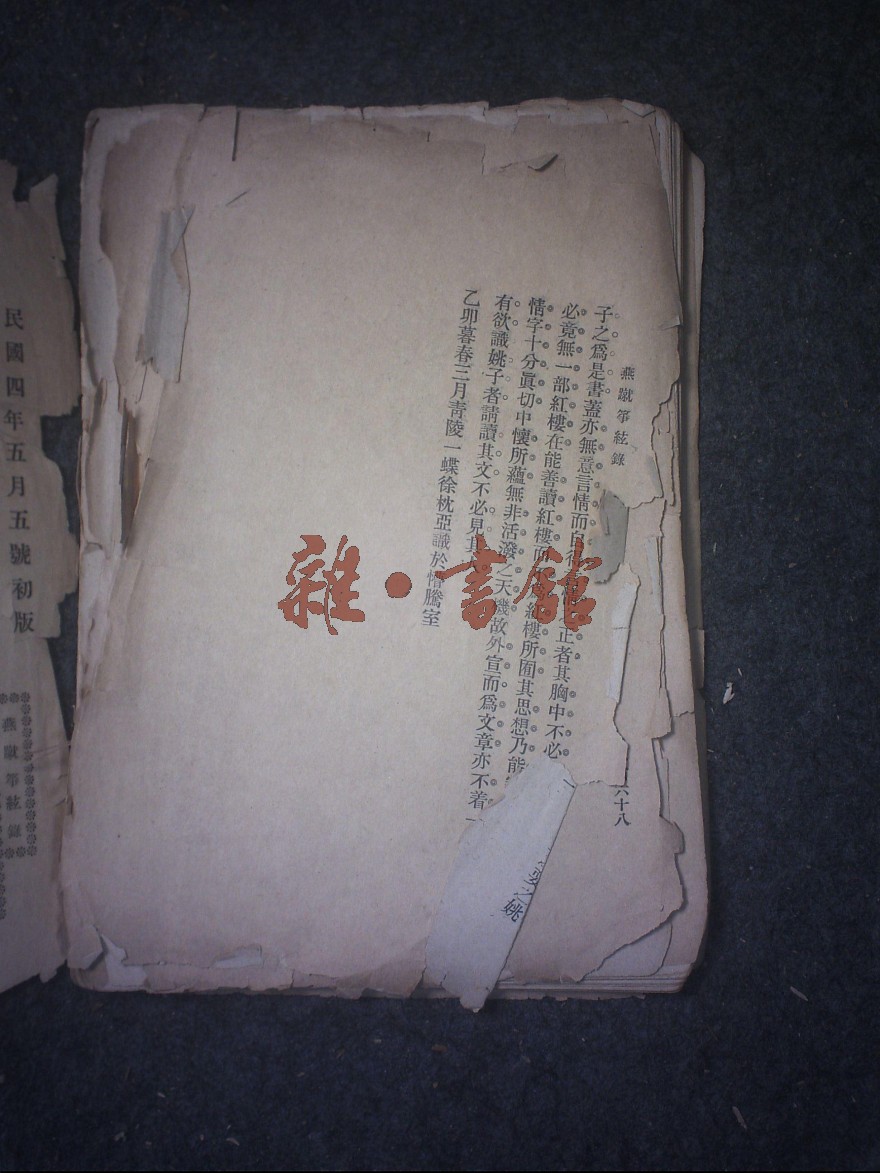 燕蹴箏絃錄
六十八
子之爲是書蓋亦無意言情而自得情之正者其胸中不必
必竟無一部紅樓在能善讀紅樓而不爲紅樓所囿其思想乃能
情字十分眞切中懷所蘊無非活潑之天機故外宣而爲文章亦不着一
有欲識姚子者請讀其文不必見其人
乙卯暮春三月青陵一蝶徐枕亞識於懵騰室
之姚
民國四年五月五號初版
燕蹴箏絃錄
雜·書館